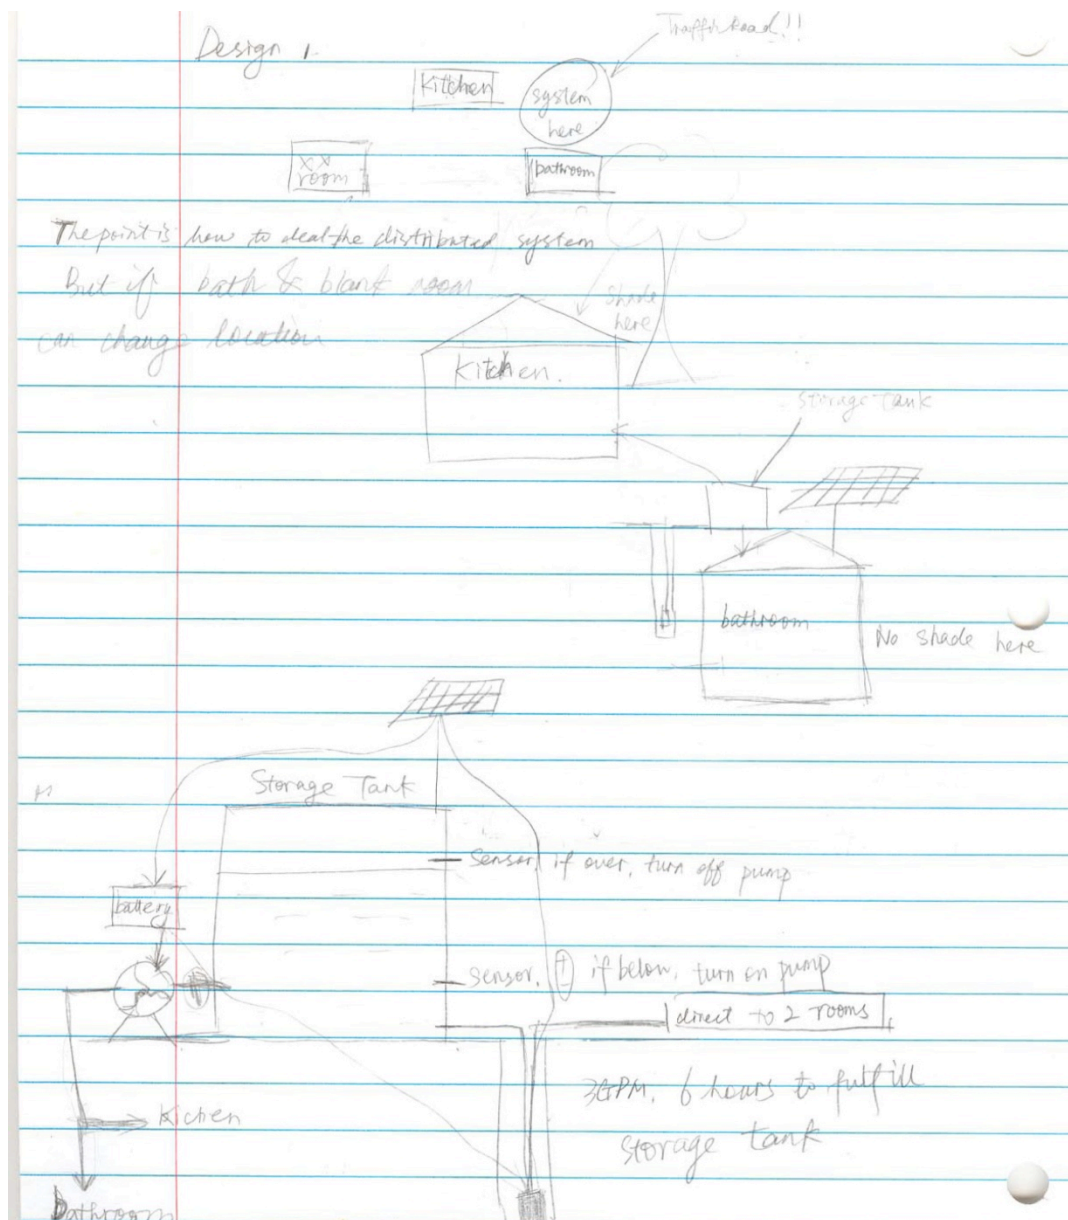 Design 1.
Traffic Road!!
Kitchen
system
here
xx
room
bathroom
The point is how to deal the distributed system
But if bath & blank room
can change location
Shade
here
Kitchen.
Storage tank
bathroom
No shade here
Storage Tank
Sensor, if over, turn off pump
battery
Sensor, if below, turn on pump
direct to 2 rooms
3GPM, 6 hours to fulfill
storage tank
Kichen
Bathroom